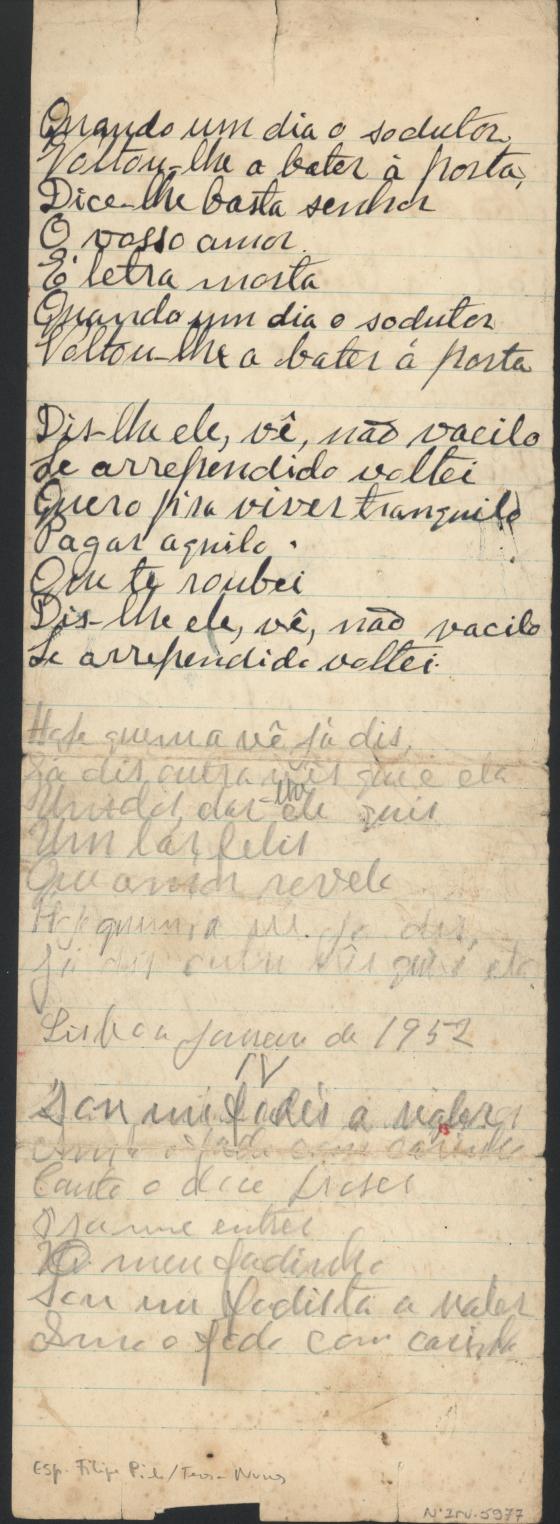 Quando um dia o sodutor
Voltou-lhe a bater à porta,
Dice-lhe basta senhor
O vosso amor.
É letra morta
Quando um dia o sodutor
Voltou-lhe a bater á porta
Dis-lhe ele, vê, não vacilo
Se arrependido voltei
Quero p'ra viver tranquilo
Pagar aquilo.
Que te roubei
Dis-lhe ele, vê, não vacilo
Se arrependido voltei.
Hoje quem a vê já dis,
Já dis outra vês que é ela
dar-lhe ele quis
Um lar felis
Que amor revela
Hoje quem a vê já dis,
Já dis outra vês que é ela
Lisboa Janeiro de 1952
IV
Sou um fadista a valor
o fado com carinho
Canto o doce
O meu fadinho
Sou um fadista a valor
o fado com carinho
Esp. Filipe Pinto/
Nº INV. 5977